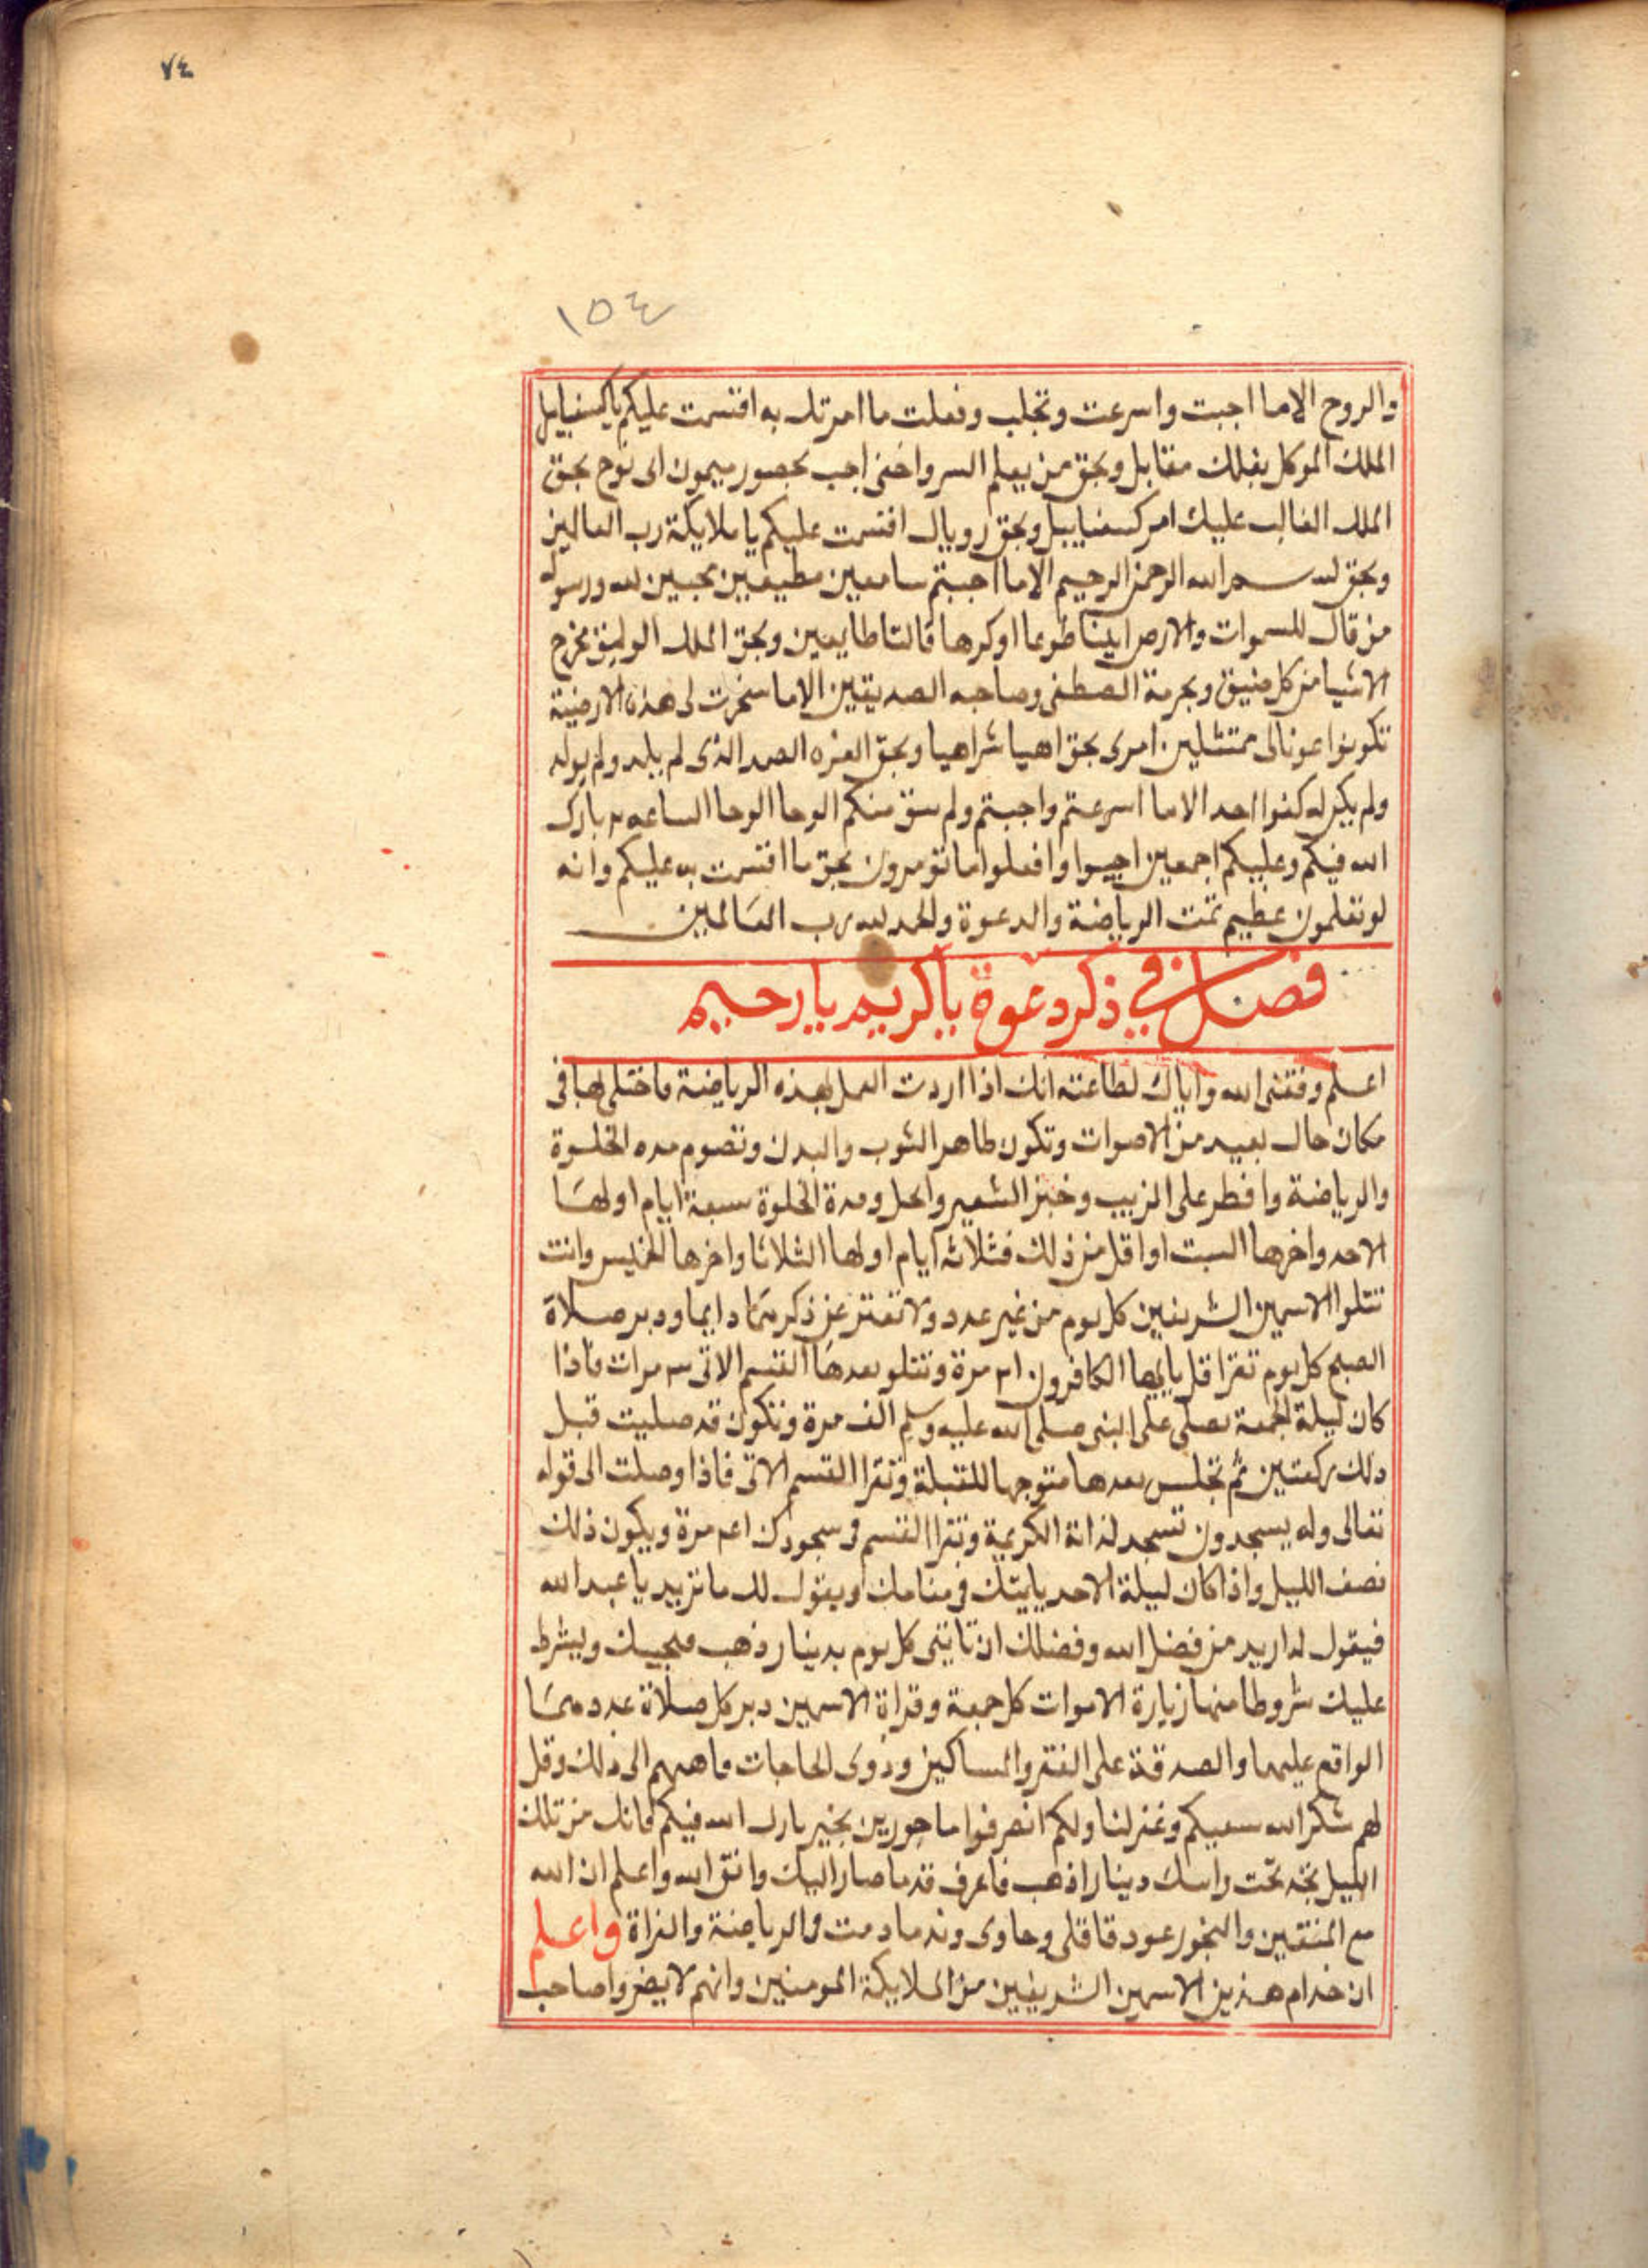 ٧٤
١٥٤
والروح الاما اجبت واسرعت وتجلب وفعلت ما امرتك به اقسمت عليكم يا كسفيابيل
الملك الموكل بفلك مقابل وبحق من يعلم السر واخفى اجب بحصور ميمون ابى نوح بحق
الملك الغالب عليك امر كسفيابيل وبحق روبيال اقسمت عليكم يا ملايكة رب العالمين
وبحق بسم الله الرحمن الرحيم الاما اجبتم سامعين مطيعين مجيبين لله ورسوله
من قال للسموات والارض ايتيا طوعا او كرها قالتا طايعين وبحق الملك الوثيق مخرج
الاشيا من كل ضيق وبحرمة المصطفى وصاحبه الصديقين الاما سخرت لى هذه الارضية
تكونوا عونا لى ممتثلين امرى بحق اهيا شراهيا وبحق العزه الصمد الذى لم يلد ولم يولد
ولم يكن له كفوا احد الاما اسرعتم واجبتم ولم سق منكم الوحا الوحا الساعه ٢ بارك
الله فيكم وعليكم اجمعين اجيبوا وافعلوا ما تؤمرون بحق ما اقسمت به عليكم وانه
لو تعلمون عظيم تمت الرياضة والدعوة والحمد لله رب العالمين
فصل في ذكر دعوة يا كريم يا رحيم
اعلم وفقنى الله واياك لطاعته انك اذا اردت العمل بهذه الرياضة فاختلى لها فى
مكان خال بعيد من الاصوات وتكون طاهر الثوب والبدن وتصوم مده الخلوة
والرياضة وافطر على الزبيب وخبز الشعير والخل ومدة الخلوة سبعة ايام اولها
الاحد واخرها السبت او اقل من ذلك فثلاثه ايام اولها الثلاثا واخرها الخميس وانت
تتلوا الاسمين الشريفين كل يوم من غير عدد ولا تفتر عن ذكرهما دايما ودبر صلاة
الصبح كل يوم تقرا قل يا ايها الكافرون ٢١ مرة وتتلو بعدها القسم الاتى ٣ مرات فاذا
كان ليلة الجمعة تصلى على النبى صلى الله عليه وسلم الف مرة وتكون قد صليت قبل
ذلك ركعتين ثم تجلس بعدها متوجها للقبلة وتقرا القسم الاتى فاذا وصلت الى قوله
تعالى وله يسجدون تسجد لذاته الكريمة وتقرا القسم فى سجودك مرة ويكون ذلك
نصف الليل واذا كان ليلة الاحد ياتيك فى منامك ويقول لك ما تريد يا عبد الله
فيقول له اريد من فضل الله وفضلك ان تاتينى كل يوم بدينار ذهب فيجيبك ويشرط
عليك شروطا منها زيارة الاموات كل جمعة وقراة الاسمين دبر كل صلاة عددهما
الواقع عليهما والصدقة على الفقر والمساكين وذوى الحاجات فاهمهم الى ذلك وقل
لهم شكر الله سعيكم وغفر لنا ولكم انصرفوا ماجورين بخير بارك الله فيكم فانك من تلك
الليل تجد تحت راسك دينارا ذهب فاعرف قد ما صار اليك واتق الله واعلم ان الله
مع المتقين والبخور عود قاقلى وجاوى وند ما دمت فى الرياضة والقراة واعلم
ان خدام هذين الاسمين الشريفين من الملايكة المومنين وانهم لا يضروا صاحب